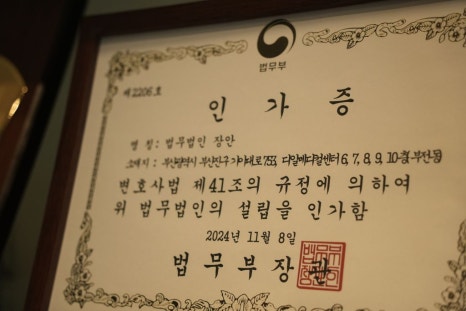 법무부
제2206호
인 가 증
명 칭 : 법무법인 장안
소재지 : 부산광역시 부산진구 가야대로 753, 디알메디컬센터 6, 7, 8, 9, 10층(부전동)
변호사법 제41조의 규정에 의하여
위 법무법인의 설립을 인가함
2024년 11월 8일
법무부장관